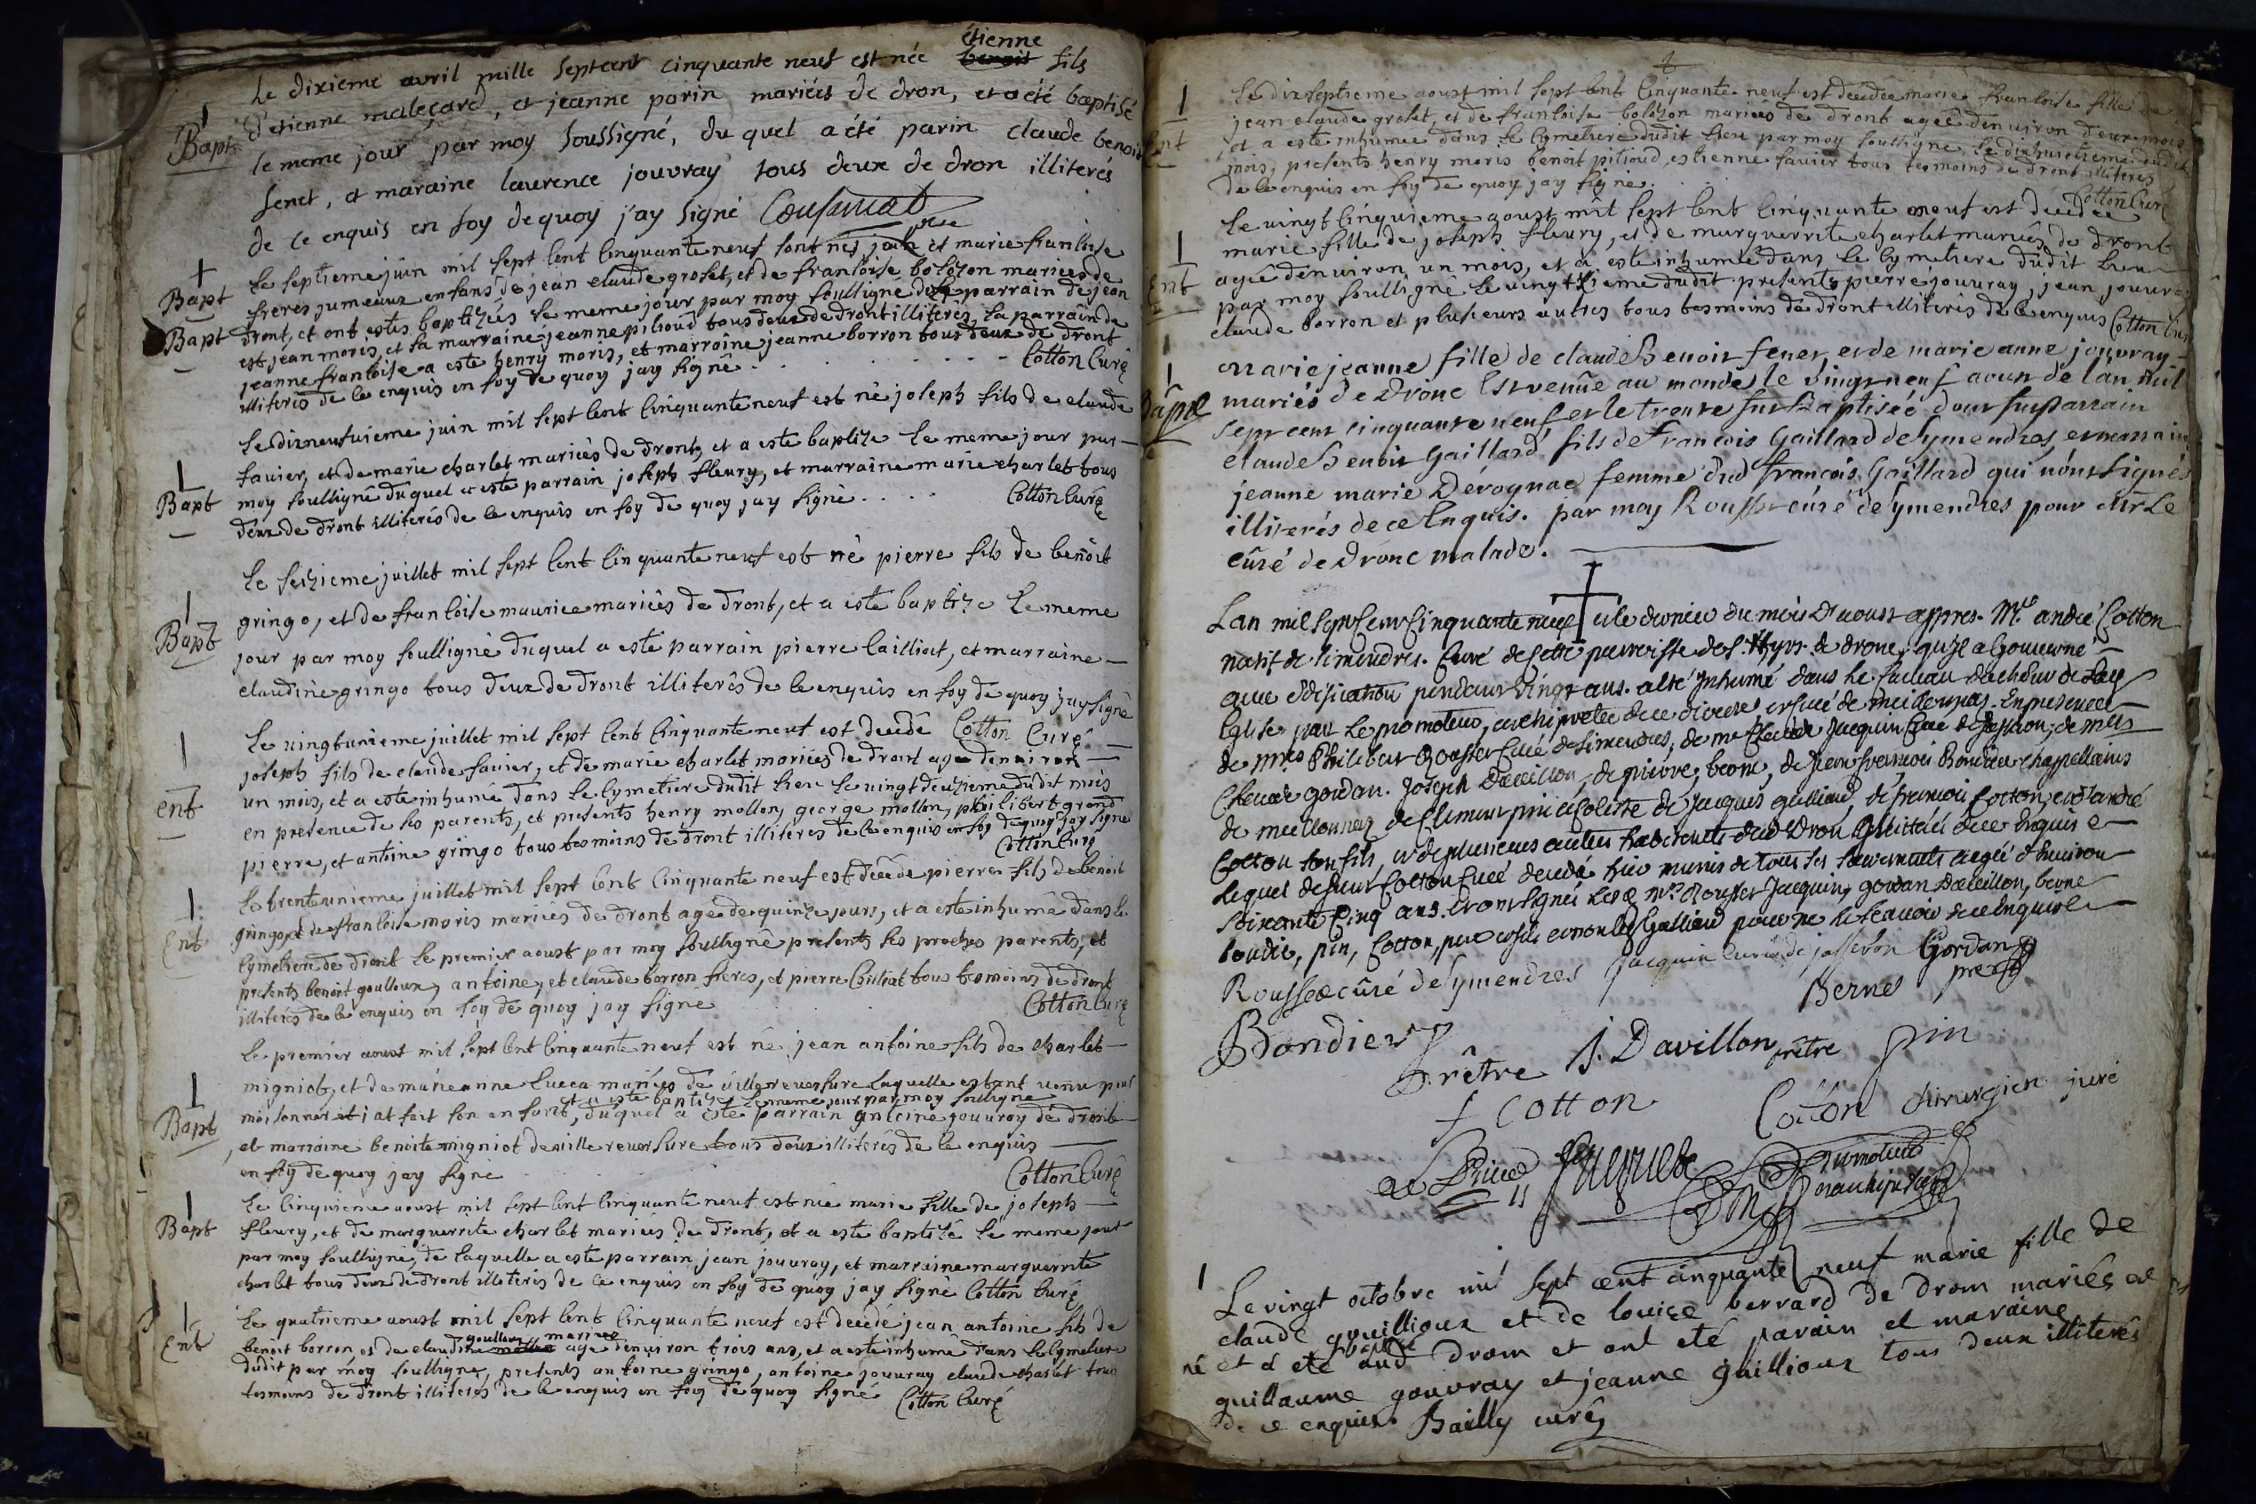 étienne
Le dixieme avril mille septcent cinquante neuf est née benoit fils
Bapt d'etienne maleçard, et jeanne parin mariées de dron, et a été baptisé
le meme jour par moy soussigné, du quel a été parin claude benoit
fenet, et maraine laurence jouvray tous deux de dron illiterés
de ce enquis en foy de quoy j'ay signé
Bapt Le septieme juin mil sept cent cinquante neuf sont nes jean et marie francoise
freres jumeaux enfans de jean claude groset, et de francoise bolozon mariees de
Bapt dront, et ont estes baptizés le meme jour par moy soussigne le parrain de jean
est jean moris, et sa marraine jeanne pilioud tous deux de dront illiterés, la parrain de
jeanne francoise a este henry moris, et marraine jeanne borron tous deux de dront
illiterés de ce enquis en foy de quoy jay signé Cotton Curé
Le dixneufvieme juin mil sept cent cinquante neuf est né joseph fils de claude
favier, et de marie charlet mariés de dront, et a este baptize le meme jour par
Bapt moy soussigné duquel a este parrain joseph fleury, et marraine marie charlet tous
deux de dront illiterés de ce enquis en foy de quoy jay signé Cotton Curé
Le seizieme juillet mil sept cent cinquante neuf est né pierre fils de benoit
Bapt gringo, et de francoise maurice mariés de dront, et a este baptize le meme
jour par moy soussigné duquel a este parrain pierre tailliat, et marraine
claudine gringo tous deux de dront illiterés de ce enquis en foy de quoy jay signé
Le vingtunieme juillet mil sept cent cinquante neuf est decedé Cotton Curé
joseph fils de claude favier, et de marie charlet mariés de dront agé denviron
ent un mois, et a este inhumé dans le cymetiere dudit lieu le vingtdeuzieme dudit mois
en presence de ses parents, et presents henry mollon, george mollon, philibert grand
pierre, et antoine gringo tous tesmoins de dront illiterés de ce enquis en foy de quoy jay signé
Cotton Curé
Le trenteunieme juillet mil sept cent cinquante neuf est decedé pierre fils de benoit
Ent gringo, et de francoise moris mariés de dront agé de quinze jours, et a este inhumé dans le
cymetiere de dront le premier aoust par moy soussigné presents ses proches parents, et
presents benoit goulloux, antoine, et claude borron freres, et pierre tous tesmoins de dront
illiterés de ce enquis en foy de quoy jay signe Cotton Curé
Le premier aoust mil sept cent cinquante neuf est né jean antoine fils de charlet
migniot, et de marieanne mariés de villereversure laquelle estant venu pour
et a este baptizé le meme jour par moy soussigné
Bapt moisonner at fait son enfant, duquel a este parrain antoine jouvray de dront
et marraine benoite migniot de villereversure tous deux illiterés de ce enquis
en foy de quoy jay signe Cotton Curé
Bapt Le cinquieme aoust mil sept cent cinquante neuf est née marie fille de joseph
fleury, et de marguerrite charlet mariés de dront, et a este baptizé le meme jour
par moy soussigné, de laquelle a este parrain jean jouvray, et marraine marguerrite
charlet tous deux de dront illiterés de ce enquis en foy de quoy jay signé Cotton Curé
Le quatrieme aoust mil sept cent cinquante neuf est decedé jean antoine fils de
goulloux mariés
Ent benoit borron et de claudine agé denviron trois ans, et a este inhumé dans le cymetiere
dudit par moy soussigné, presents antoine gringo, antoine jouvray claude charlet tous
tesmoins de dront illiterés de ce enquis en foy de quoy signé Cotton Curé
Le dixseptieme aoust mil sept cent cinquante neuf est decedée marie francoise fille de
jean claude groset, et de francoise bolozon mariés de dront agée denviron deux mois
Ent et a este inhumée dans le cymetiere dudit lieu par moy soussigné, le dixhuictieme dudit
mois, presents henry moris benoit pilioud, estienne favier tous tesmoins de dront illiterés
de ce enquis en foy de quoy jay signé. Cotton Curé
Le vingtcinquieme aoust mil sept cent cinquante neuf est decedée
marie fille de joseph fleury, et de marguerrite charlet mariés de dront
Ent agée denviron un mois, et a este inhumée dans le cymetiere dudit lieu
par moy soussigné le vingt sixieme dudit presents pierre jouvray, jean jouvray
claude borron et plusieurs autres tous tesmoins de dront illiterés de ce enquis Cotton Curé
marie jeanne fille de claude Benoit fenet, et de marie anne jouvray
Bapt mariés de Dronc Est venüe au monde le vingt neuf aoust de l'an mil
sept cent cinquante neuf et le trente fut Baptisée dont fut parrain
claude Benoit Gaillard fils de françois Gaillard de symendres, et marraine
jeanne marie Derognac femme dud françois Gaillard qui n'ont signés
illiterés de ce Enquis. par moy Rousset curé de symendres pour mr Le
curé de Dronc malade.
Lan mil sept Cent Cinquante neuf et le dernier du mois d'aoust appres. Mre andré Cotton
natif de simendres. Curé de Cette parroisse de St Cyr. de drone, qu'il a Gouverné
avec edification pendant vingt ans. a été Inhumé dans le caveau du choeur de lad
Eglise par Le promoteur, archipretre de ce diocese et curé de meillonnas. En presence
de mres Philibert Rousset Curé de simendres, de mr Jacquin Curé de jasseron, de mrs
gordan. Joseph Davillon, de pierre berne, de françois Bondier chappellains
de meillonnaz de Clement pin de jacques galliard, de françois Cotton, et d'andré
Cotton son fils, et de plusieurs autres habitants dud Dron illiterés de ce Enquis
Lequel deffunt Cotton Curé decedé hier munis de tous les sacrements agée d'Environ
soixante Cinq ans. et ont signés Mrs Rousset Jacquin, gordan Davillon, berne
bondier, pin, Cotton, pere et fils et non led Galliard pour ne le scavoir de ce Enquis
Rousset curé de symendres jacquin curé de jasseron Gordan
Berne pretre
Bondier
Prêtre J. Davillon prêtre pin
f Cotton Cotton chirurgien juré
Le vingt octobre mil sept cent cinquante neuf marie fille de
claude guillioux et de louise berrard de drom mariés est
baptisée
né et a eté aud drom et ont eté parain et maraine
guillaume gouvray et jeanne guillioux tous deux illiterés
de ce enquis. Bailly curé